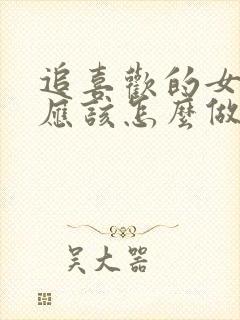 追喜歡的女
應該怎麼做
吳大器